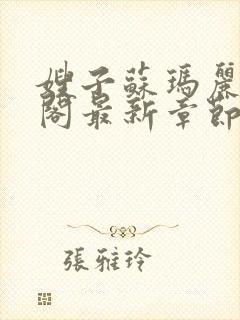 嫂子蘇瑪麗
閣最新章節
張雅玲